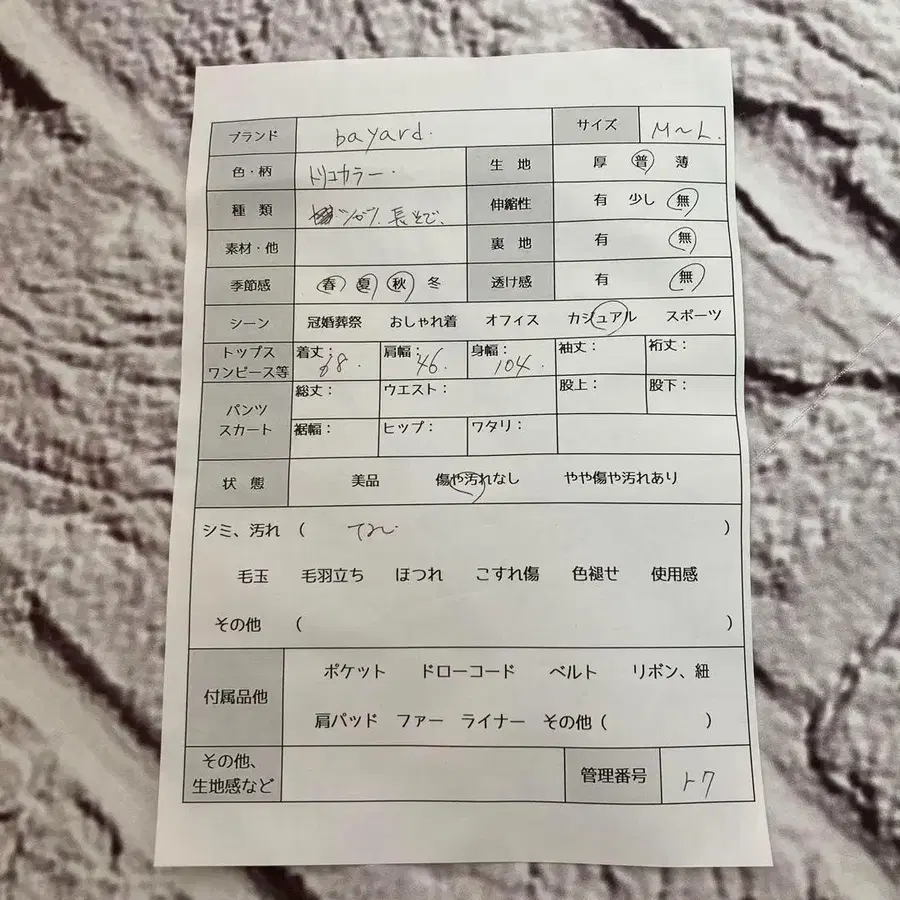 ブランド bayard. サイズ M〜L.
色・柄 トリコカラー. 生 地 厚 普 薄
種 類 シャツ. 長そで. 伸縮性 有 少し 無
素材・他 裏 地 有 無
季節感 春 夏 秋 冬 透け感 有 無
シーン 冠婚葬祭 おしゃれ着 オフィス カジュアル スポーツ
トップス ワンピース等 着丈: 68. 肩幅: 46. 身幅: 104. 袖丈: 裄丈:
パンツ スカート 総丈: ウエスト: 股上: 股下:
裾幅: ヒップ: ワタリ:
状 態 美品 傷や汚れなし やや傷や汚れあり
シミ、汚れ ( )
毛玉 毛羽立ち ほつれ こすれ傷 色褪せ 使用感
その他 ( )
付属品他 ポケット ドローコード ベルト リボン、紐
肩パッド ファー ライナー その他 ( )
その他、
生地感など 管理番号 ト7